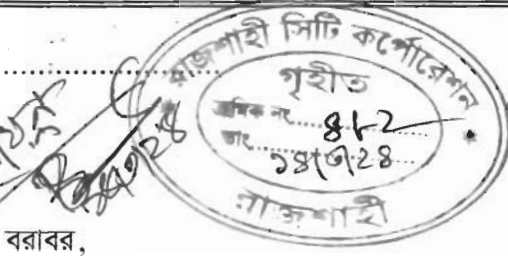 রাজশাহী সিটি কর্পোরেশন
গৃহীত
ক্রমিক নং ৪৮২
তাং ১৪/৩/২৪
রাজশাহী
বরাবর,